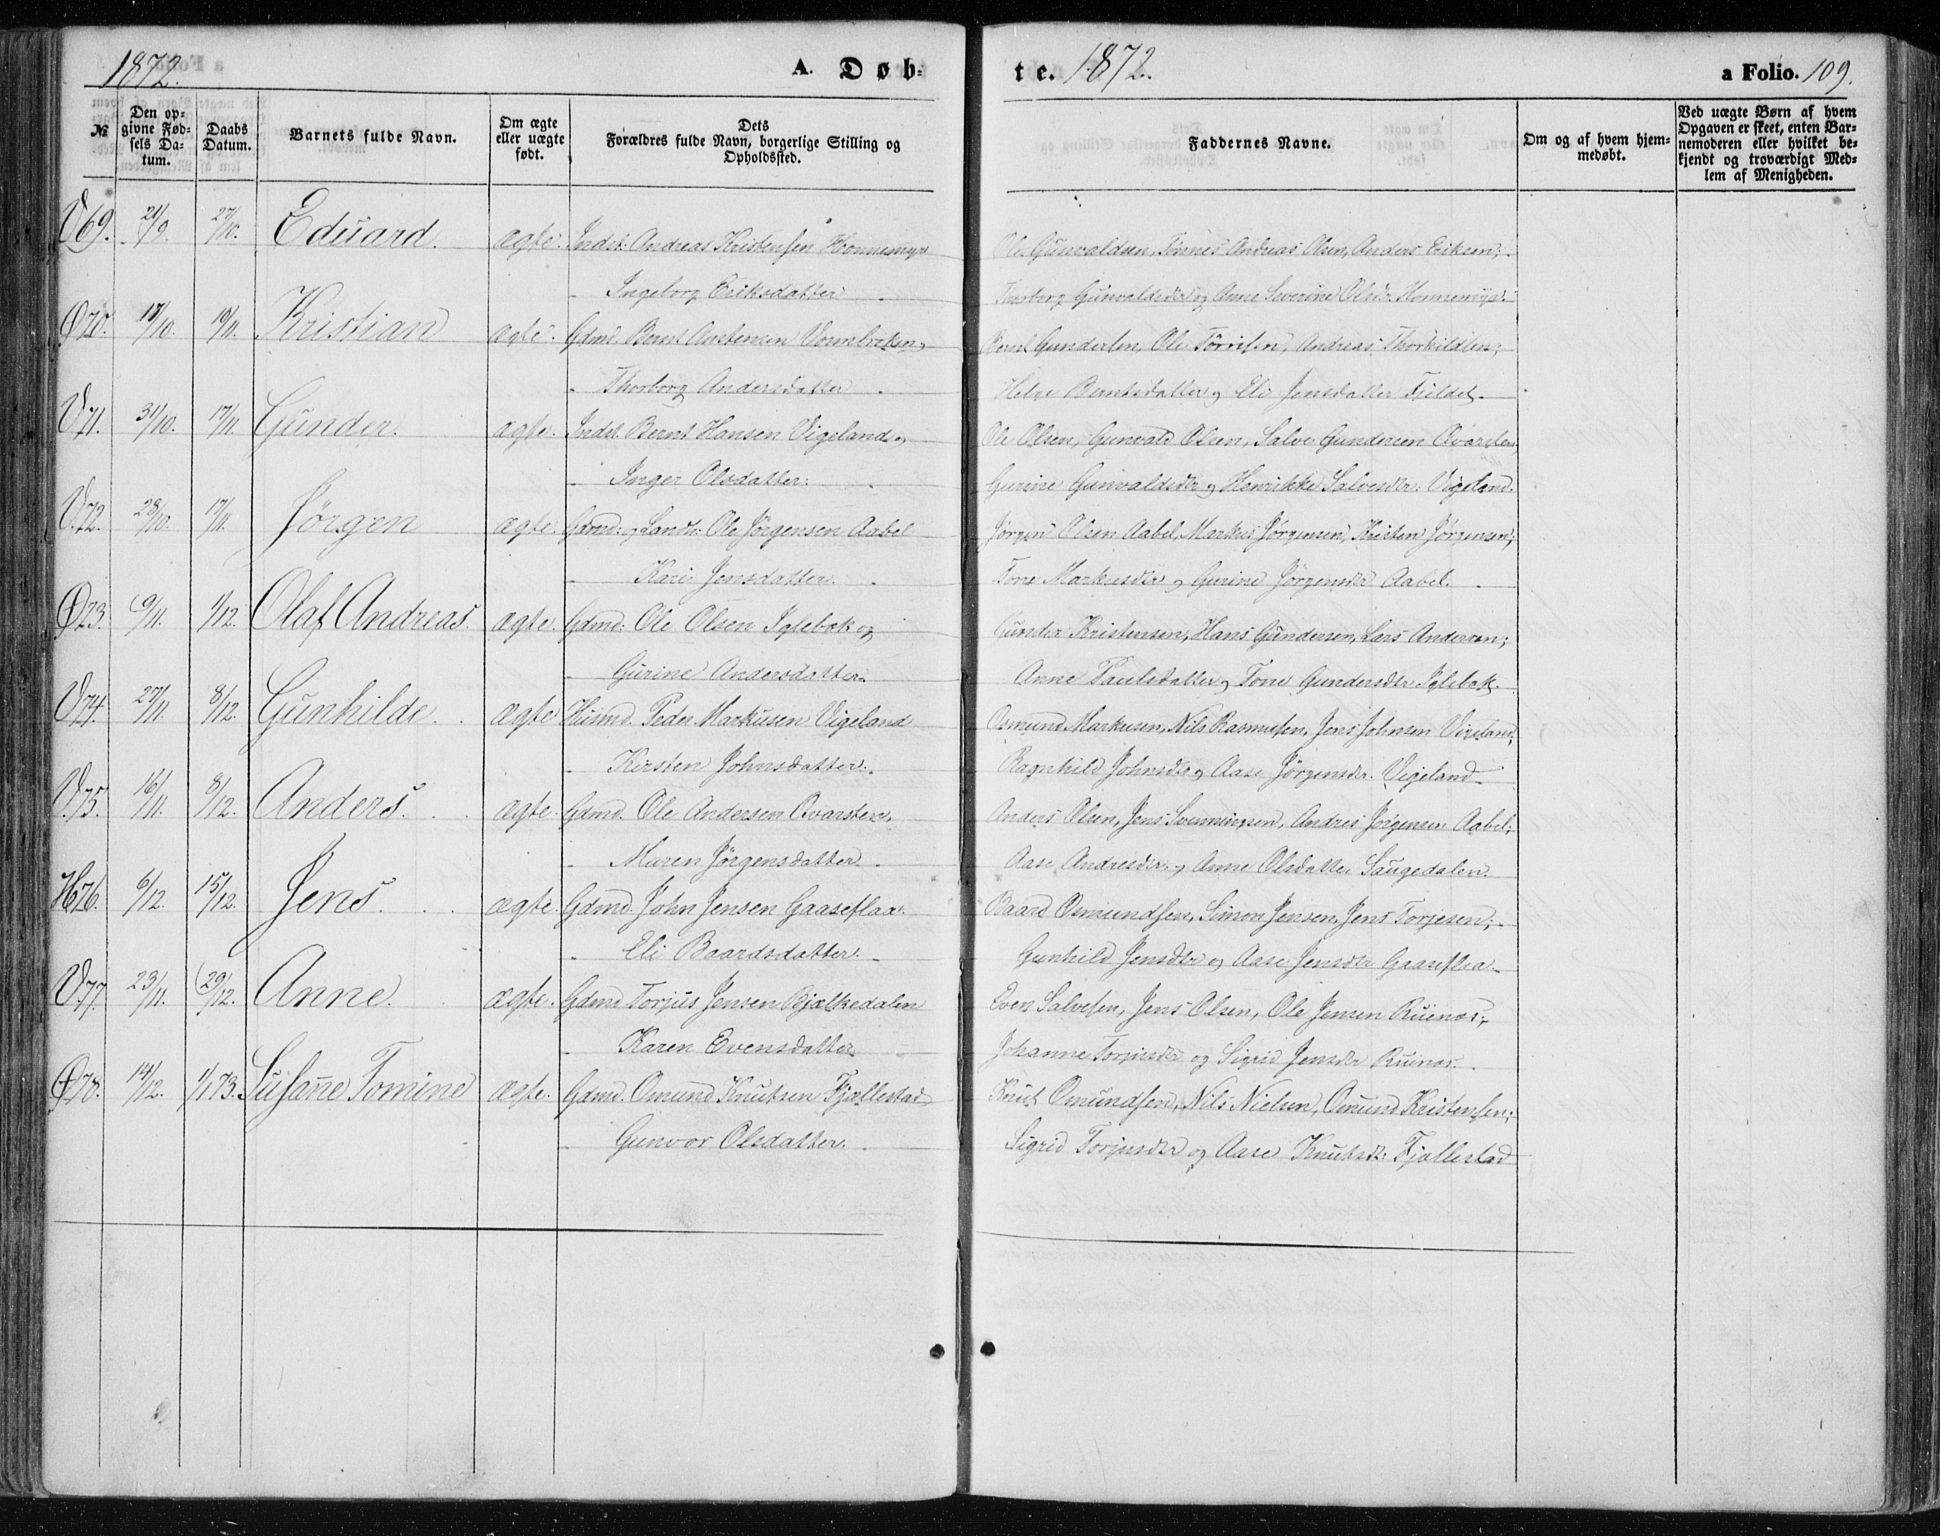 1872. A. Døb- te. 1872. a Folio. 109.
№ Den opgivne Fødsels Datum. Daabs Datum. Barnets fulde Navn. Om ægte eller uægte født. Dets Forældres fulde Navn, borgerlige Stilling og Opholdssted. Faddernes Navne. Om og af hvem hjemmedøbt. Ved uægte Børn af hvem Opgaven er skeet, enten Barnemoderen eller hvilket bekjendt og troværdigt Medlem af Menigheden.
V69. 21/9. 27/10. Eduard. ægte. Indst. Andreas Kristensen Honnemyr Ole Gunvaldsen, Tønnes Andreas Olsen, Anders Eriksen;
Ingeborg Eriksdatter Thorborg Gunvaldsdtr og Anne Severine Olsdtr Honnemyr.
Ø70. 17/10. 10/11. Kristian ægte. Gdmd. Bernt Austensen Vormbroken, Bernt Gundersen, Ole Tørrisen, Andreas Thorkildsen;
Thorborg Andersdatter Helge Berntsdatter og Eli Jensdatter Fjildet.
V71. 31/10. 17/11. Gunder. ægte. Indst. Bernt Hansen Vigeland og Ole Olsen, Gunvald Olsen, Salve Gundersen Qvarsten;
Inger Olsdatter. Gurine Gunvaldsdtr og Henrikke Salvesdtr. Vigeland.
V.72. 28/10. 17/11. Jørgen ægte. Gdmd: og Landh. Ole Jørgensen Aabel Jørgen Olsen Aabel, Markus Jørgensen, Kristen Jørgensen;
Kari Jensdatter. Tone Markusdtr og Gurine Jørgensdtr Aabel.
Ø73. 9/11. 1/12. Olaf Andreas. ægte. Gdmd: Ole Olsen Iglebæk og Gunder Kristensen, Hans Gundersen, Lars Andersen;
Gurine Andersdatter. Anne Paulsdatter og Tone Gundersdtr Iglebæk.
V74. 27/11. 8/12. Gunhilde. ægte Husmd. Peder Markusen Vigeland Osmund Markusen, Nils Rasmusen, Jens Johnsen Vigeland;
Kirsten Johnsdatter. Ragnhild Johnsdtr og Aase Jørgensdtr. Vigeland
V.75. 16/11. 8/12. Anders. ægte. Gdmd. Ole Andersen Qvarsten, Anders Olsen, Jens Svenningsen, Andres Jørgensen Aabel;
Maren Jørgensdatter. Aase Andresdtr. og Anne Olsdatter Saugedalen.
H76. 6/12. 15/12. Jens. ægte. Gdmd. John Jensen Gaaseflaa. Baard Osmundsen, Simon Jensen, Jens Torjesen;
Eli Baardsdatter. Gunhild Jensdtr og Aase Jensdtr Gaaseflaa
V.77. 23/11. 29/12. Anne. ægte. Gdmd. Torjus Jensen Bjælkedalen Even Salvesen, Jens Olsen, Ole Jensen Ruenæs;
Karen Evensdatter Johanne Torjusdtr og Sigrid Jensdtr Ruinæs.
Ø78. 14/12. 1/1 73. Susanne Tomine ægte. Gdmd. Omund Knutsen Fjællestad Knut Omundsen, Nils Nielsen, Omund Kristensen;
Gunvor Olsdatter. Sigrid Torjusdtr og Aase Knutsdtr. Fjællestad